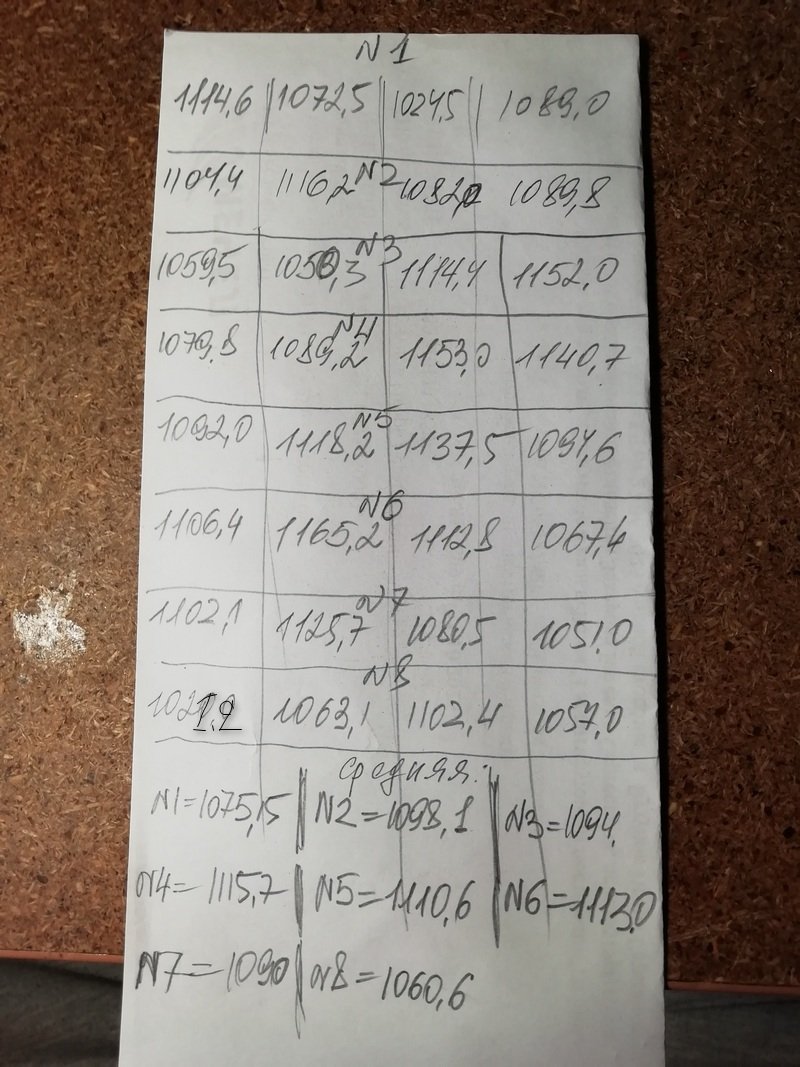 N1
1114,6 1072,5 1024,5 1089,0
N2
1104,4 1116,2 1082,2 1089,8
N3
1059,5 1050,3 1114,4 1152,0
N4
1079,8 1089,2 1153,0 1140,7
N5
1092,0 1118,2 1137,5 1094,6
N6
1106,4 1165,2 1112,8 1067,4
N7
1102,1 1125,7 1080,5 1051,0
N8
1063,1 1102,4 1057,0
средняя:
N1=1075,15 N2=1098,1 N3=1094.
N4= 1115,7 N5=1110,6 N6=1113,0
N7=1090 N8=1060,6